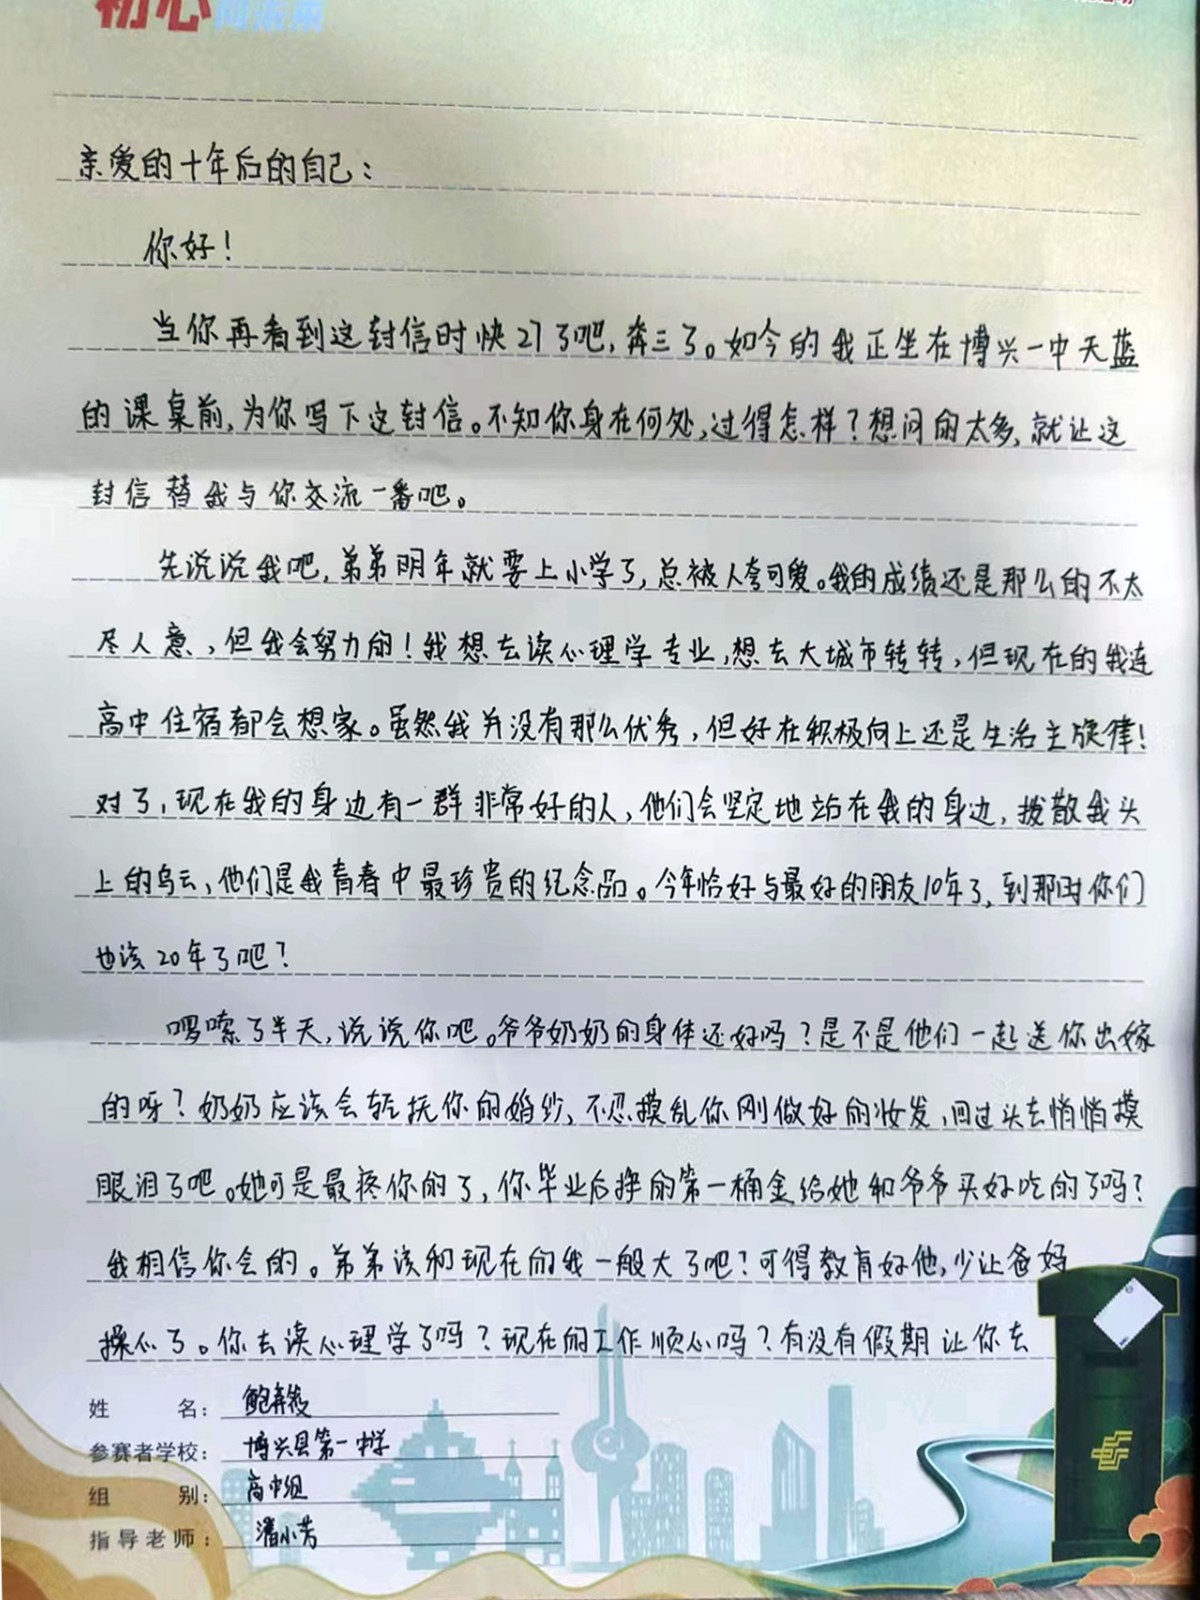 初心
亲爱的十年后的自己：
你好！
当你再看到这封信时快27了吧，奔三了。如今的我正坐在博兴一中天蓝
的课桌前，为你写下这封信。不知你身在何处，过得怎样？想问的太多，就让这
封信替我与你交流一番吧。
先说说我吧，弟弟明年就要上小学了，总被人夸可爱。我的成绩还是那么的不太
尽人意，但我会努力的！我想去读心理学专业，想去大城市转转，但现在的我连
高中住宿都会想家。虽然我并没有那么优秀，但好在积极向上还是生活主旋律！
对了，现在我的身边有一群非常好的人，他们会坚定地站在我的身边，拨散我头
上的乌云，他们是我青春中最珍贵的纪念品。今年恰好与最好的朋友10年了，到那时你们
也该20年了吧？
啰嗦了半天，说说你吧。爷爷奶奶的身体还好吗？是不是他们一起送你出嫁
的呀？奶奶应该会轻抚你的婚纱，不忍摸乱你刚做好的妆发，回过头去悄悄摸
眼泪了吧。她可是最疼你的了，你毕业后挣的第一桶金给她和爷爷买好吃的了吗？
我相信你会的。弟弟该和现在的我一般大了吧？可得教育好他，少让爸妈
操心了。你去读心理学了吗？现在的工作顺心吗？有没有假期让你去
姓 名：鲍奔
参赛者学校：博兴县第一中学
组 别：高中组
指导老师：潘小芳